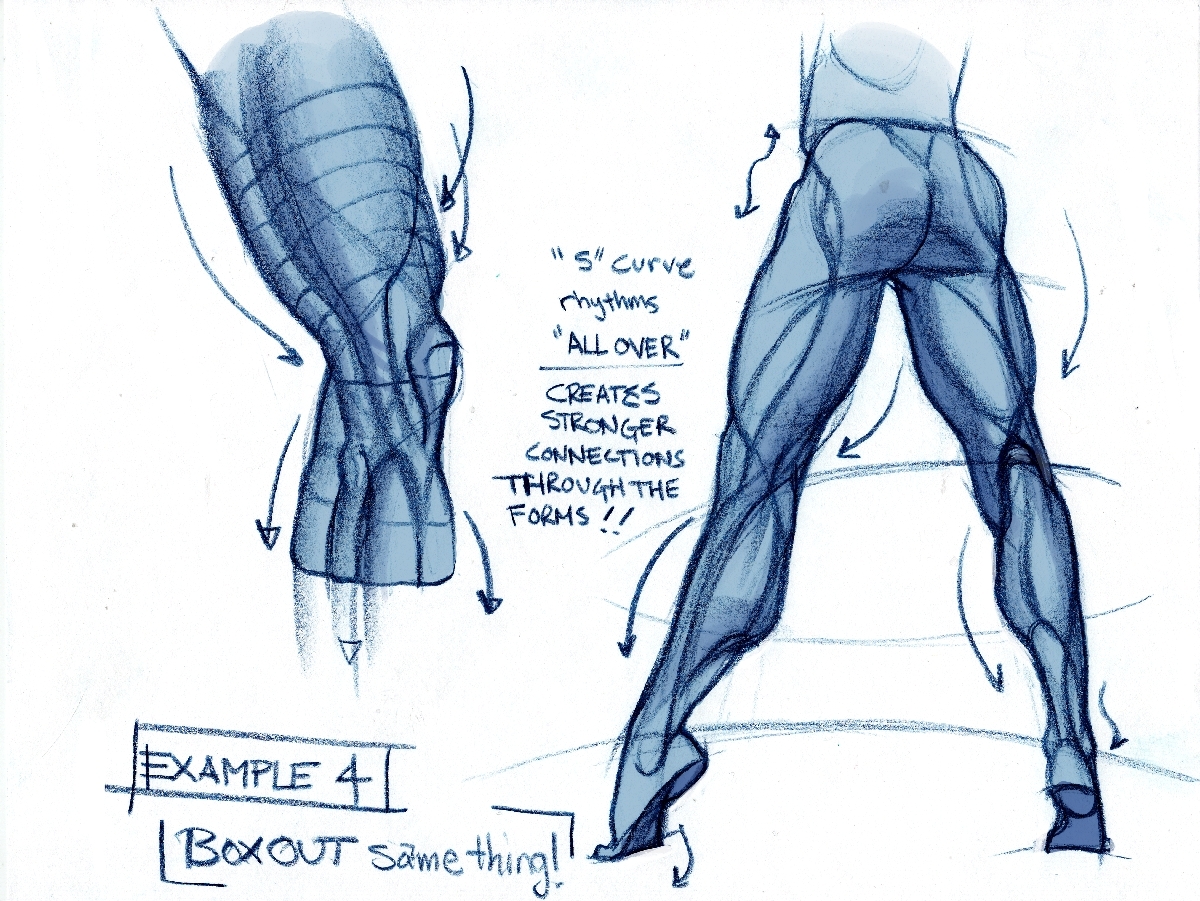 "S" curve
rhythms
"ALL OVER"
CREATES
STRONGER
CONNECTIONS
THROUGH THE
FORMS !!
EXAMPLE 4
BOXOUT same thing!